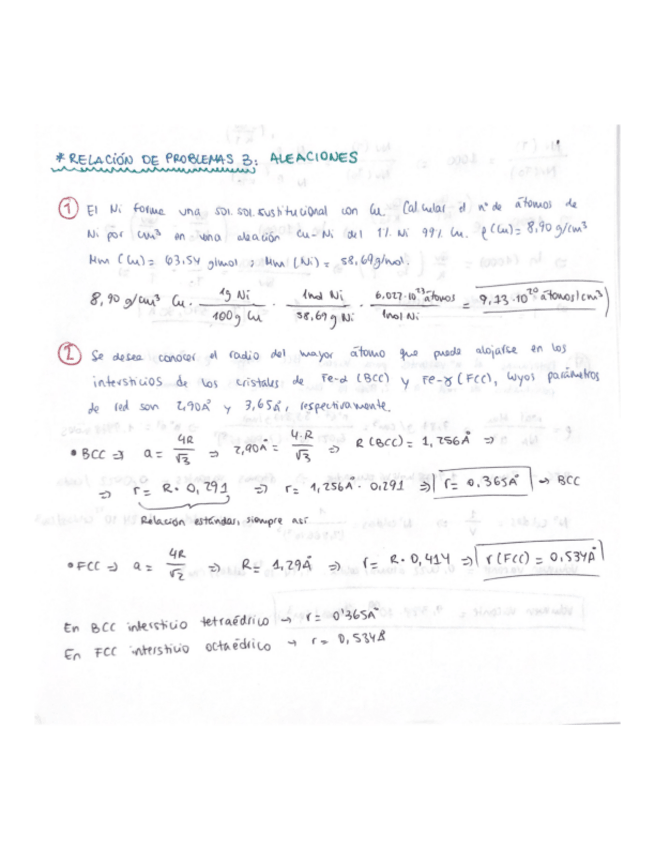 * RELACIÓN DE PROBLEMAS 3: ALEACIONES
① El Ni forma una sol. sol. sustitucional con Cu. Calcular el nº de átomos de
Ni por cm³ en una aleación Cu-Ni del 1% Ni 99% Cu. ρ(Cu) = 8,90 g/cm³
Mm (Cu) = 63,54 g/mol. Mm (Ni) = 58,69 g/mol.
8,90 g/cm³ Cu · 1g Ni / 100g Cu · 1mol Ni / 58,69 g Ni · 6,022·10²³ átomos / 1mol Ni = 9,13·10²⁰ átomos/cm³
② Se desea conocer el radio del mayor átomo que puede alojarse en los
intersticios de los cristales de Fe-α (BCC) y Fe-γ (FCC), cuyos parámetros
de red son 2,90Å y 3,65Å, respectivamente.
• BCC ⇒ a = 4R/√3 ⇒ 2,90Å = 4·R/√3 ⇒ R (BCC) = 1,256Å ⇒
⇒ r = R · 0,291 ⇒ r = 1,256Å · 0,291 ⇒ r = 0,365Å → BCC
Relación estándar, siempre así
• FCC ⇒ a = 4R/√2 ⇒ R = 1,29Å ⇒ r = R · 0,414 ⇒ r (FCC) = 0,534Å
En BCC intersticio tetraédrico → r = 0'365Å
En FCC intersticio octaédrico → r = 0,534Å